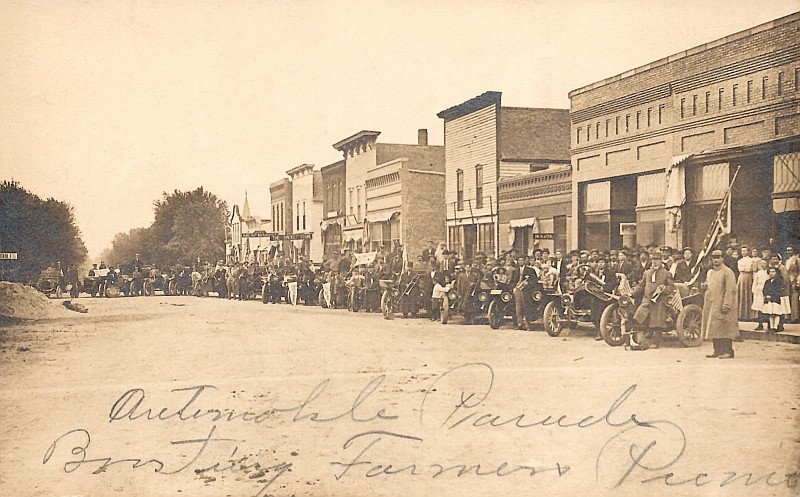 Automobile Parade
Boosting Farmers Picnic